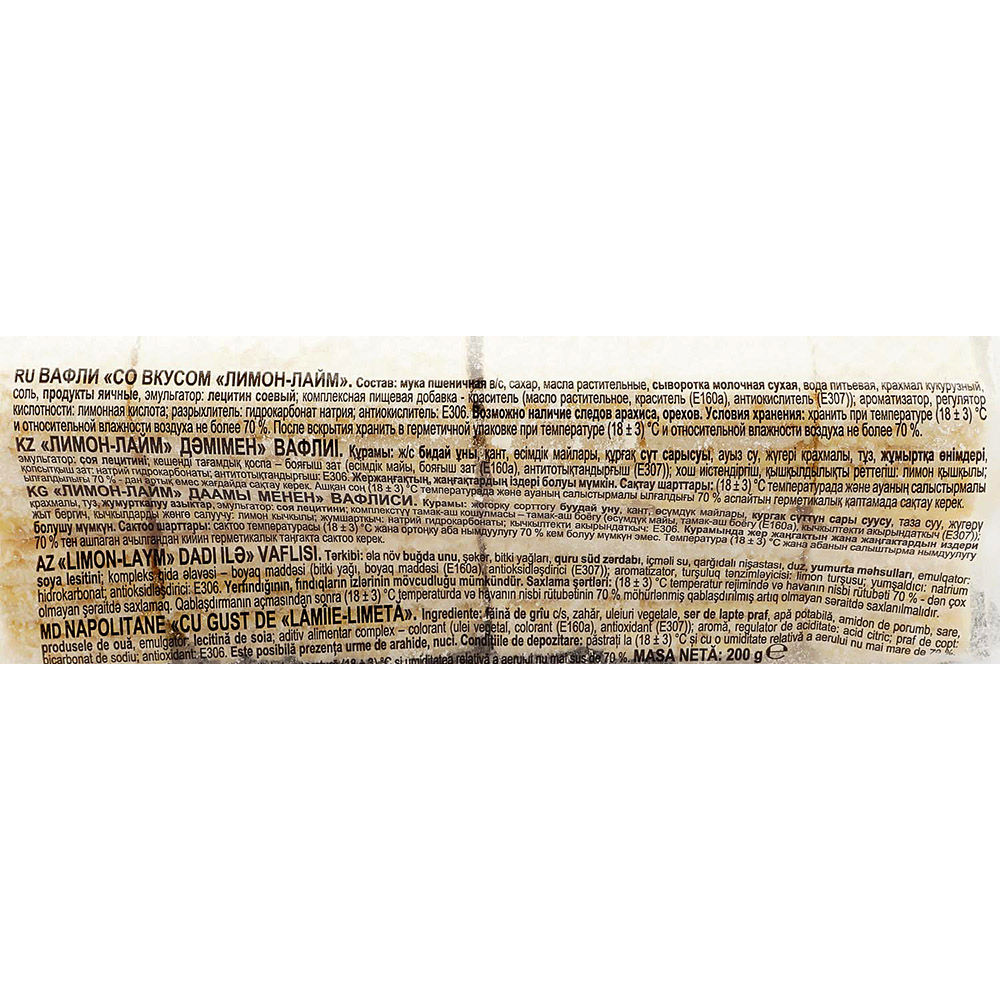 RU ВАФЛИ «СО ВКУСОМ «ЛИМОН-ЛАЙМ». Состав: мука пшеничная в/с, сахар, масла растительные, сыворотка молочная сухая, вода питьевая, крахмал кукурузный,
соль, продукты яичные, эмульгатор: лецитин соевый; комплексная пищевая добавка - краситель (масло растительное, краситель (Е160а), антиокислитель (Е307)); ароматизатор, регулятор
кислотности: лимонная кислота; разрыхлитель: гидрокарбонат натрия; антиокислитель: Е306. Возможно наличие следов арахиса, орехов. Условия хранения: хранить при температуре (18 ± 3) °С
и относительной влажности воздуха не более 70 %. После вскрытия хранить в герметичной упаковке при температуре (18 ± 3) °С и относительной влажности воздуха не более 70 %.
KZ «ЛИМОН-ЛАЙМ» ДӘМІМЕН» ВАФЛИІ. Құрамы: ж/с бидай ұны, қант, өсімдік майлары, құрғақ сүт сарысуы, ауыз су, жүгері крахмалы, тұз, жұмыртқа өнімдері,
эмульгатор: соя лецитині; кешенді тағамдық қоспа – бояғыш зат (өсімдік майы, бояғыш зат (Е160а), антитотықтандырғыш (Е307)); хош иістендіргіш, қышқылдықты реттегіш: лимон қышқылы;
қопсытқыш зат: натрий гидрокарбонаты; антитотықтандырғыш: Е306. Жержаңғақтың, жаңғақтардың іздері болуы мүмкін. Сақтау шарттары: (18 ± 3) °С температурада және ауаның салыстырмалы
ылғалдылығы 70 % - дан артық емес жағдайда сақтау керек. Ашқан соң (18 ± 3) °С температурада және ауаның салыстырмалы ылғалдығы 70 % аспайтын герметикалық қаптамада сақтау керек.
KG «ЛИМОН-ЛАЙМ» ДААМЫ МЕНЕН» ВАФЛИСИ. Курамы: жогорку сорттогу буудай уну, кант, өсүмдүк майлары, кургак сүттүн сары суусу, таза суу, жүгөрү
крахмалы, туз, жумурткалуу азыктар, эмульгатор: соя лецитини; комплекстүү тамак-аш кошулмасы – тамак-аш боёгу (өсүмдүк майы, тамак-аш боёгу (Е160а), кычкылтекти акырындаткыч (Е307));
жыт бергич, кычкылдарды жөнгө салуучу: лимон кычкылы; жумшарткыч: натрий гидрокарбонаты; кычкылтекти акырындаткыч: Е306. Курамында жер жаңгактын жана жаңгактардын издери
болушу мүмкүн. Сактоо шарттары: сактоо температурасы (18 ± 3) °С жана ортоңку аба нымдуулугу 70 % кем болуу мүмкүн эмес. Температура (18 ± 3) °С жана абанын салыштырма нымдуулугу
70 % тен ашпаган ачылгандан кийин герметикалык таңгакта сактоо керек.
AZ «LIMON-LAYM» DADI İLƏ» VAFLISI. Tərkibi: əla növ buğda unu, şəkər, bitki yağları, quru süd zərdabı, içməli su, qarğıdalı nişastası, duz, yumurta məhsulları, emulqator:
soya lesitini; kompleks qida əlavəsi – boyaq maddəsi (bitki yağı, boyaq maddəsi (E160a), antioksidləşdirici (E307)); aromatizator, turşuluq tənzimləyicisi: limon turşusu; yumşaldıcı: natrium
hidrokarbonat; antioksidləşdirici: E306. Yerfındığının, fındıqların izlərinin mövcudluğu mümkündür. Saxlama şərtləri: (18 ± 3) °C temperatur rejimində və havanın nisbi rütubəti 70 % - dən çox
olmayan şəraitdə saxlamaq. Qablaşdırmanın açmasından sonra (18 ± 3) °C temperaturda və havanın nisbi rütubətinin 70 % möhürlənmiş qablaşdırılmış artıq olmayan şəraitdə saxlanılmalıdır.
MD NAPOLITANE «CU GUST DE «LĂMÎIE-LIMETĂ». Ingrediente: făină de grîu c/s, zahăr, uleiuri vegetale, ser de lapte praf, apă potabilă, amidon de porumb, sare,
produsele de ouă, emulgator: lecitină de soia; aditiv alimentar complex – colorant (ulei vegetal, colorant (E160a), antioxidant (E307)); aromă, regulator de aciditate: acid citric; praf de copt:
bicarbonat de sodiu; antioxidant: E306. Este posibilă prezența urme de arahide, nuci. Condițiile de depozitare: păstrați la (18 ± 3) °C și cu o umiditate relativă a aerului nu mai mare de 70 %.
(18 ± 3) °C și umiditatea relativă a aerului nu mai sus de 70 %. MASA NETĂ: 200 g ℮